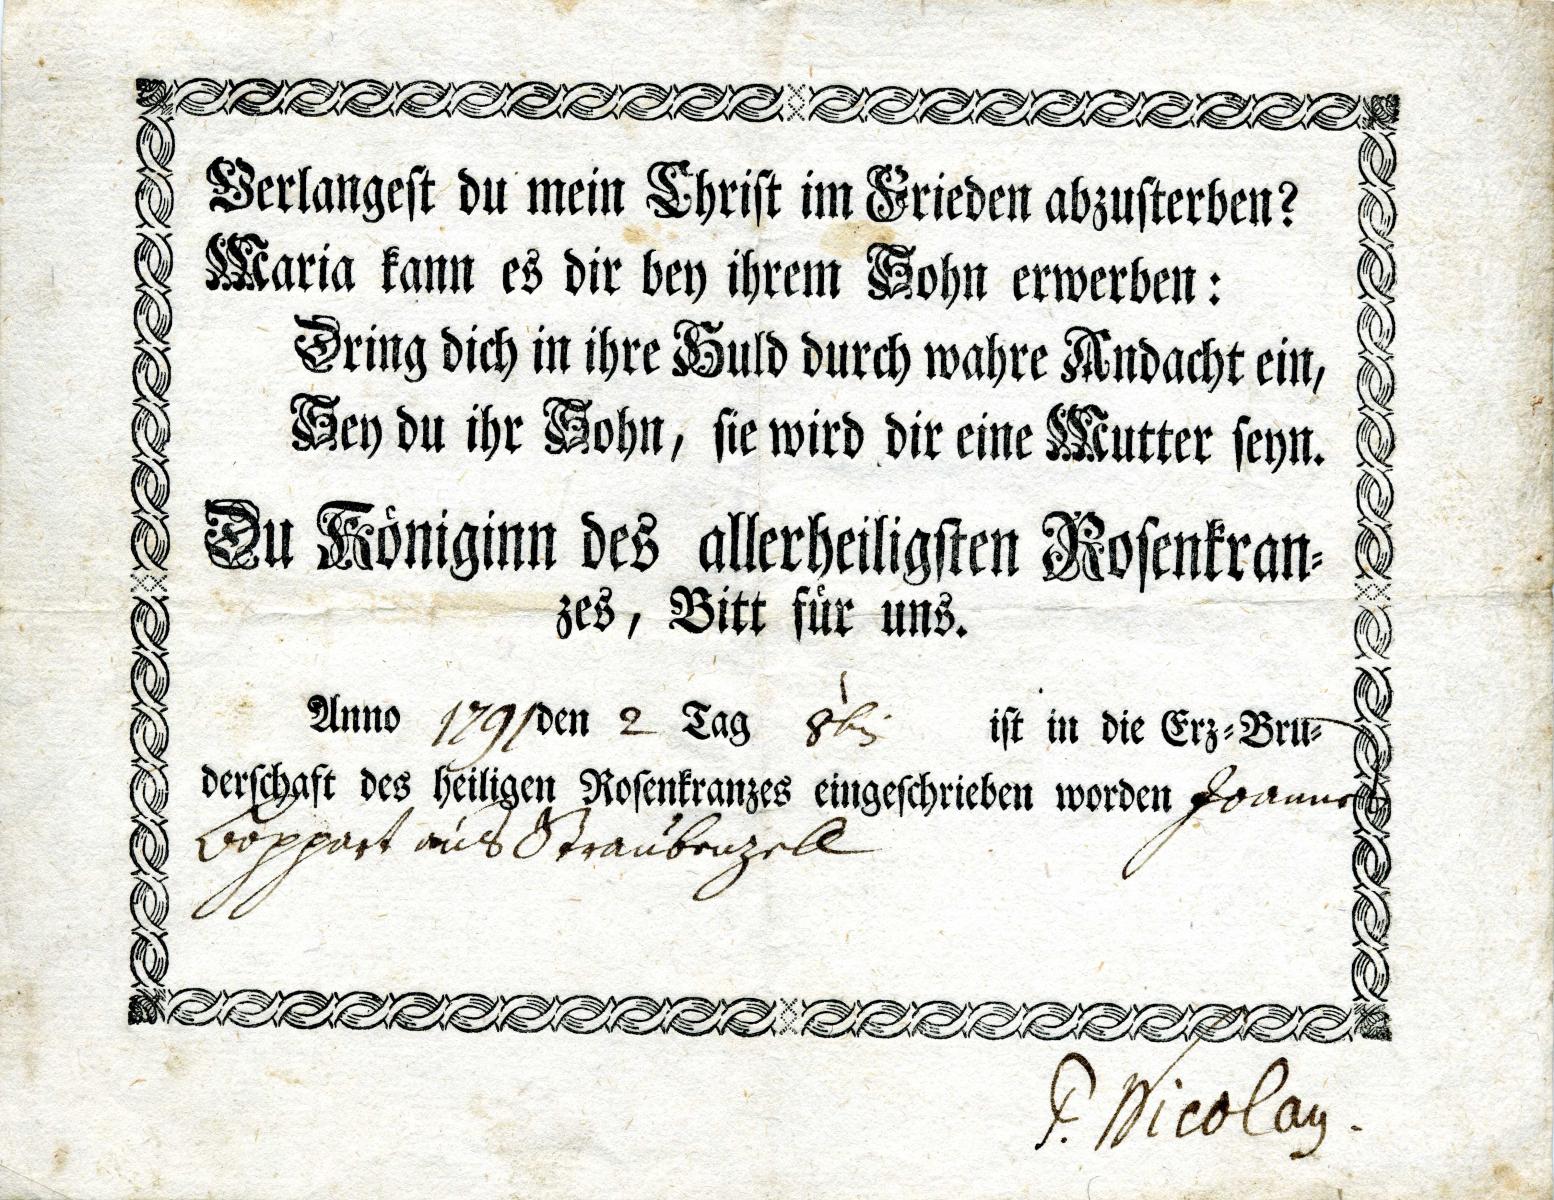 Verlangest du mein Christ im Frieden abzusterben?
Maria kann es dir bey ihrem Sohn erwerben:
Dring dich in ihre Huld durch wahre Andacht ein,
Sey du ihr Sohn, sie wird dir eine Mutter seyn.
Du Königinn des allerheiligsten Rosenkran-
zes, Bitt für uns.
Anno 1791 den 2 Tag 8bris ist in die Erz-Bru-
derschaft des heiligen Rosenkranzes eingeschrieben worden Joannes
Boppart aus Straubenzell
P. Nicolay.